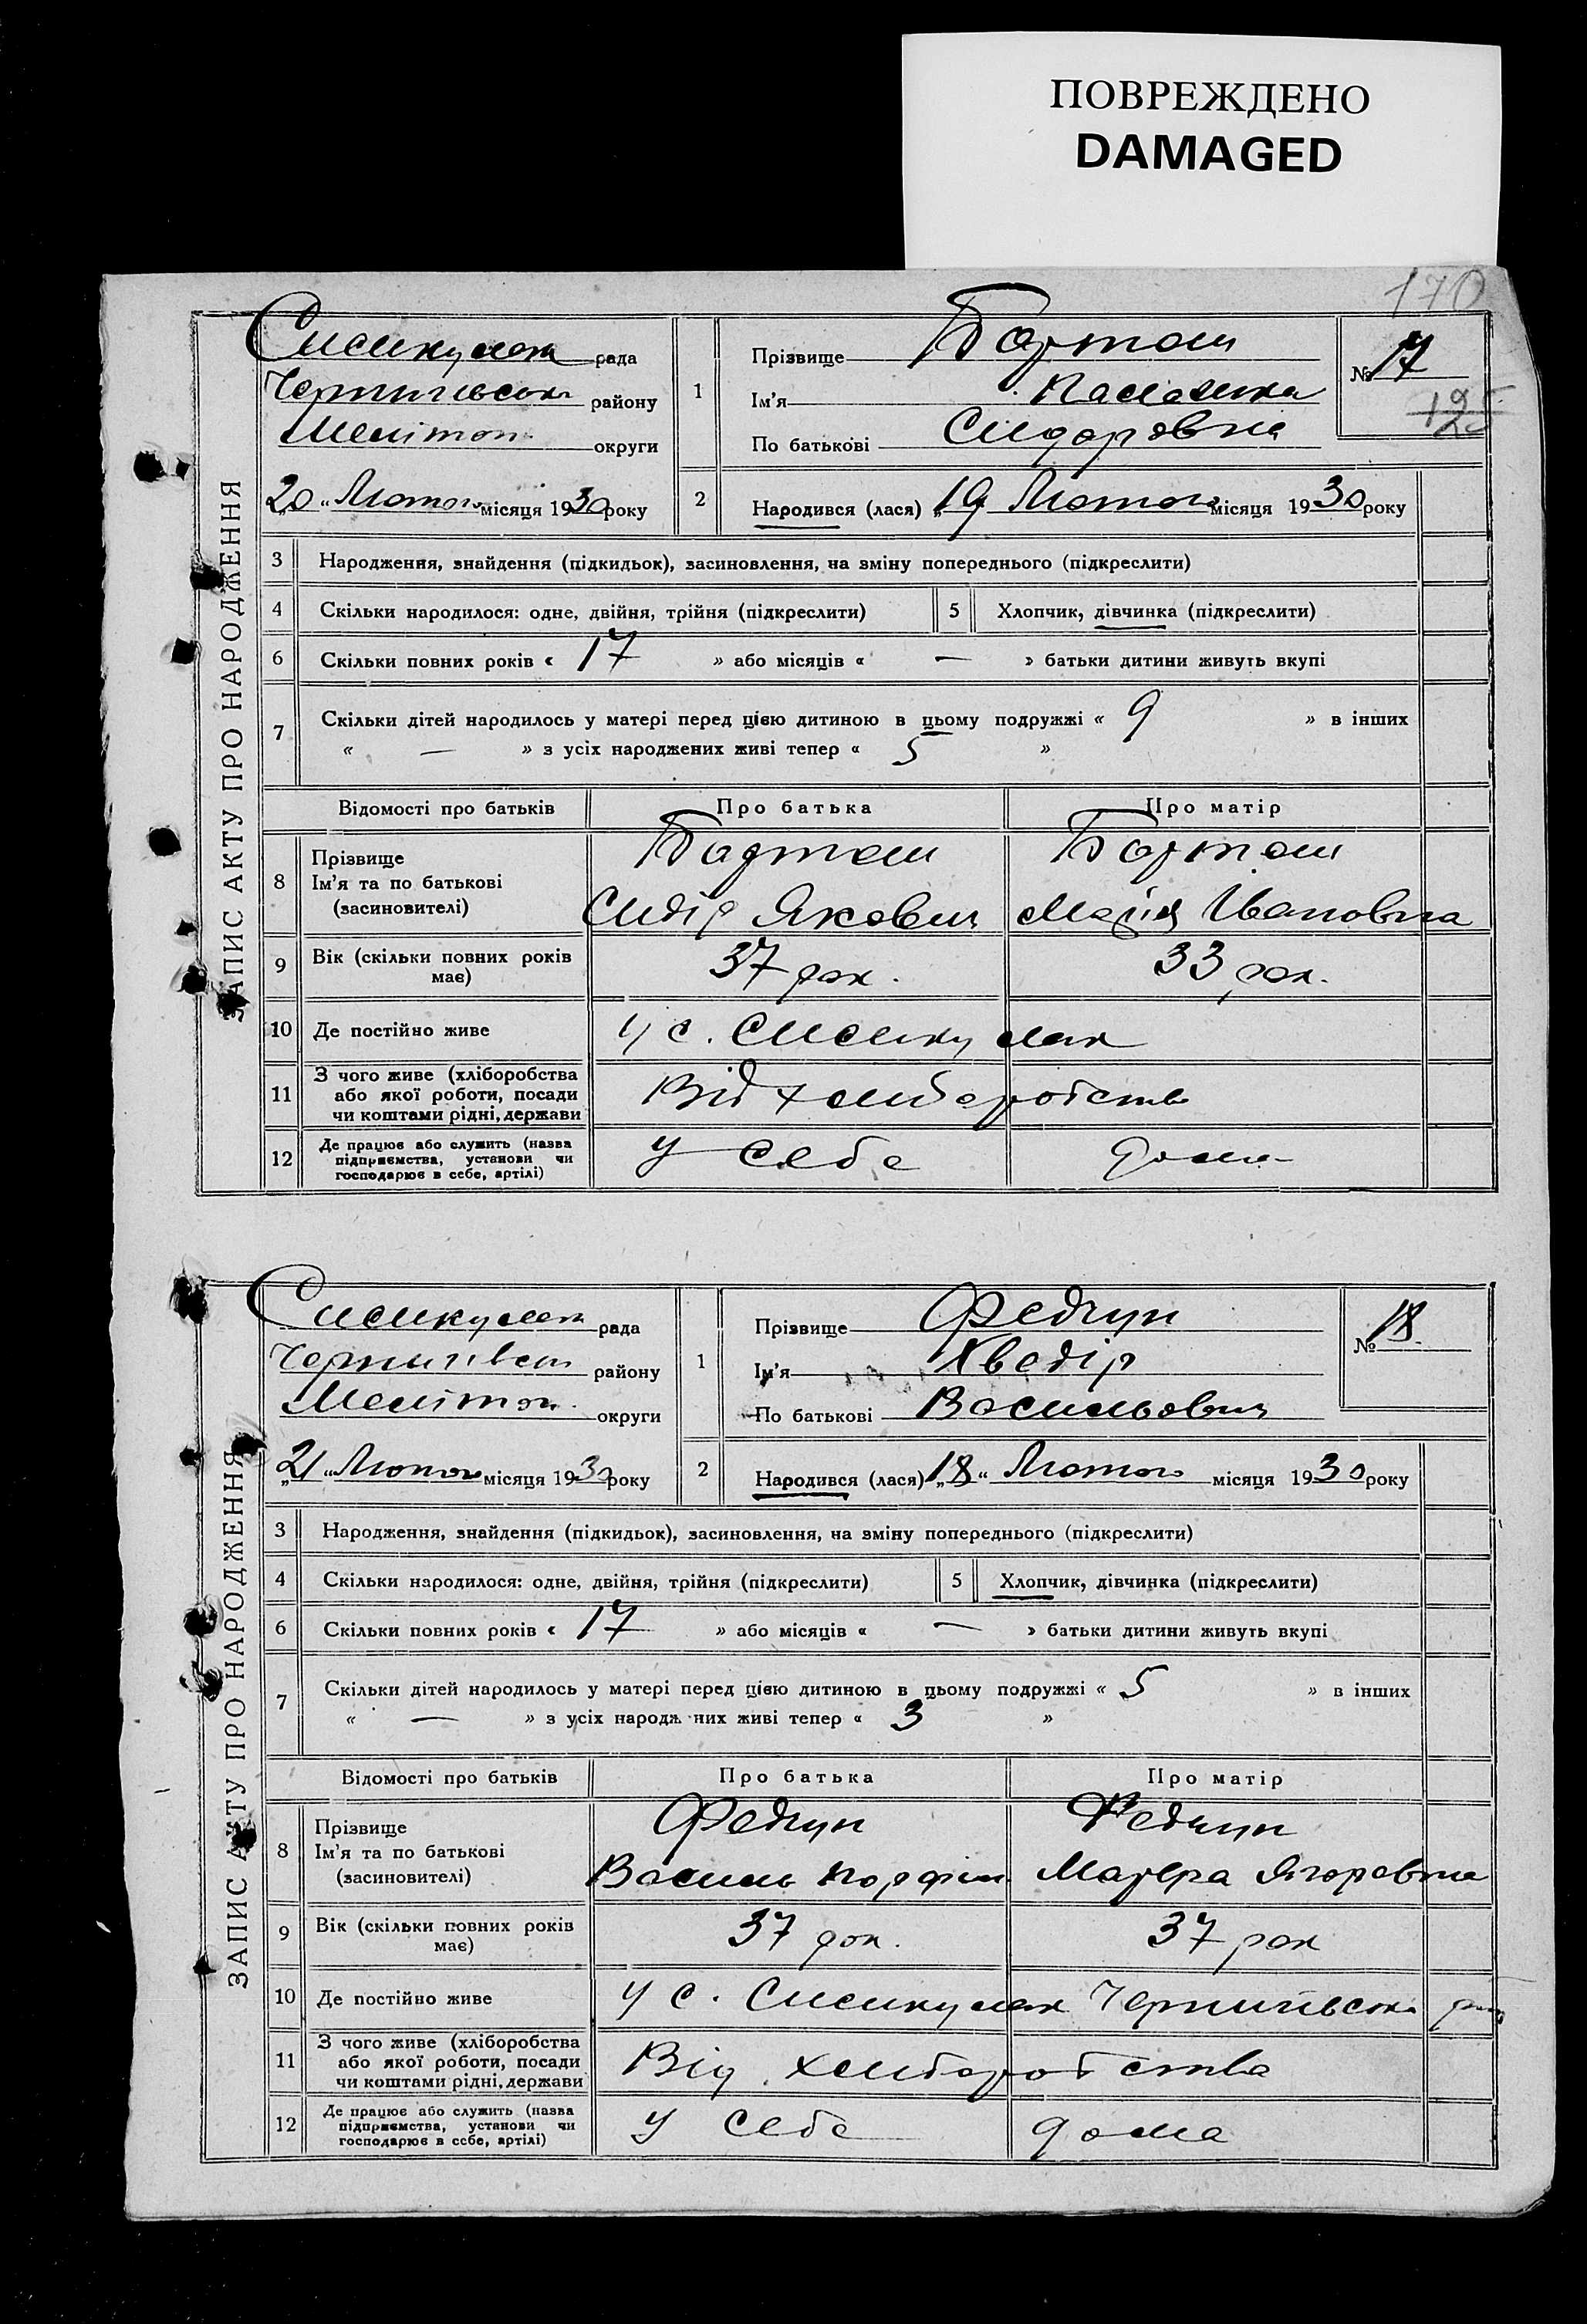 ПОВРЕЖДЕНО
DAMAGED
170
ЗАПИС АКТУ ПРО НАРОДЖЕННЯ
Сисикулак рада
Чернигівськ району
Мелітоп. округи
„20“ Лютого місяця 1930 року
1 Прізвище Бартош
Ім'я
По батькові Сидоровна
№ 17
195
2 Народився (лася) „19 Лютого місяця 1930 року
3 Народження, знайдення (підкидьок), засиновлення, на зміну попереднього (підкреслити)
4 Скільки народилося: одне, двійня, трійня (підкреслити) 5 Хлопчик, дівчинка (підкреслити)
6 Скільки повних років « 17 » або місяців « — » батьки дитини живуть вкупі
7 Скільки дітей народилось у матері перед цією дитиною в цьому подружжі « 9 » в інших
« — » з усіх народжених живі тепер « 5 »
Відомості про батьків Про батька Про матір
8 Прізвище Бартош Бартош
Ім'я та по батькові
(засиновителі) Сидір Якович Марія Івановна
9 Вік (скільки повних років має) 37 рок. 33 рок.
10 Де постійно живе у с. Сисикулак
11 З чого живе (хліборобства
або якої роботи, посади
чи коштами рідні, держави Від хлиборобств
12 Де працює або служить (назва
підприємства, установи чи
господарює в себе, артілі) у себе дома
ЗАПИС АКТУ ПРО НАРОДЖЕННЯ
Сисикулак рада
Чернигівськ району
Мелітоп. округи
„21“ Лютого місяця 1930 року
1 Прізвище Федчун
Ім'я Хведір
По батькові Васильович
№ 18.
2 Народився (лася) „18“ Лютого місяця 1930 року
3 Народження, знайдення (підкидьок), засиновлення, на зміну попереднього (підкреслити)
4 Скільки народилося: одне, двійня, трійня (підкреслити) 5 Хлопчик, дівчинка (підкреслити)
6 Скільки повних років « 17 » або місяців « — » батьки дитини живуть вкупі
7 Скільки дітей народилось у матері перед цією дитиною в цьому подружжі « 5 » в інших
« — » з усіх народж них живі тепер « 3 »
Відомості про батьків Про батька Про матір
8 Прізвище Федчун Федчун
Ім'я та по батькові
(засиновителі) Василь Ягоровна
9 Вік (скільки повних років має) 37 рок. 37 рок
10 Де постійно живе у с. Сисикулак Чернигівськ
11 З чого живе (хліборобства
або якої роботи, посади
чи коштами рідні, держави Від хлиборобства
12 Де працює або служить (назва
підприємства, установи чи
господарює в себе, артілі) у себе дома